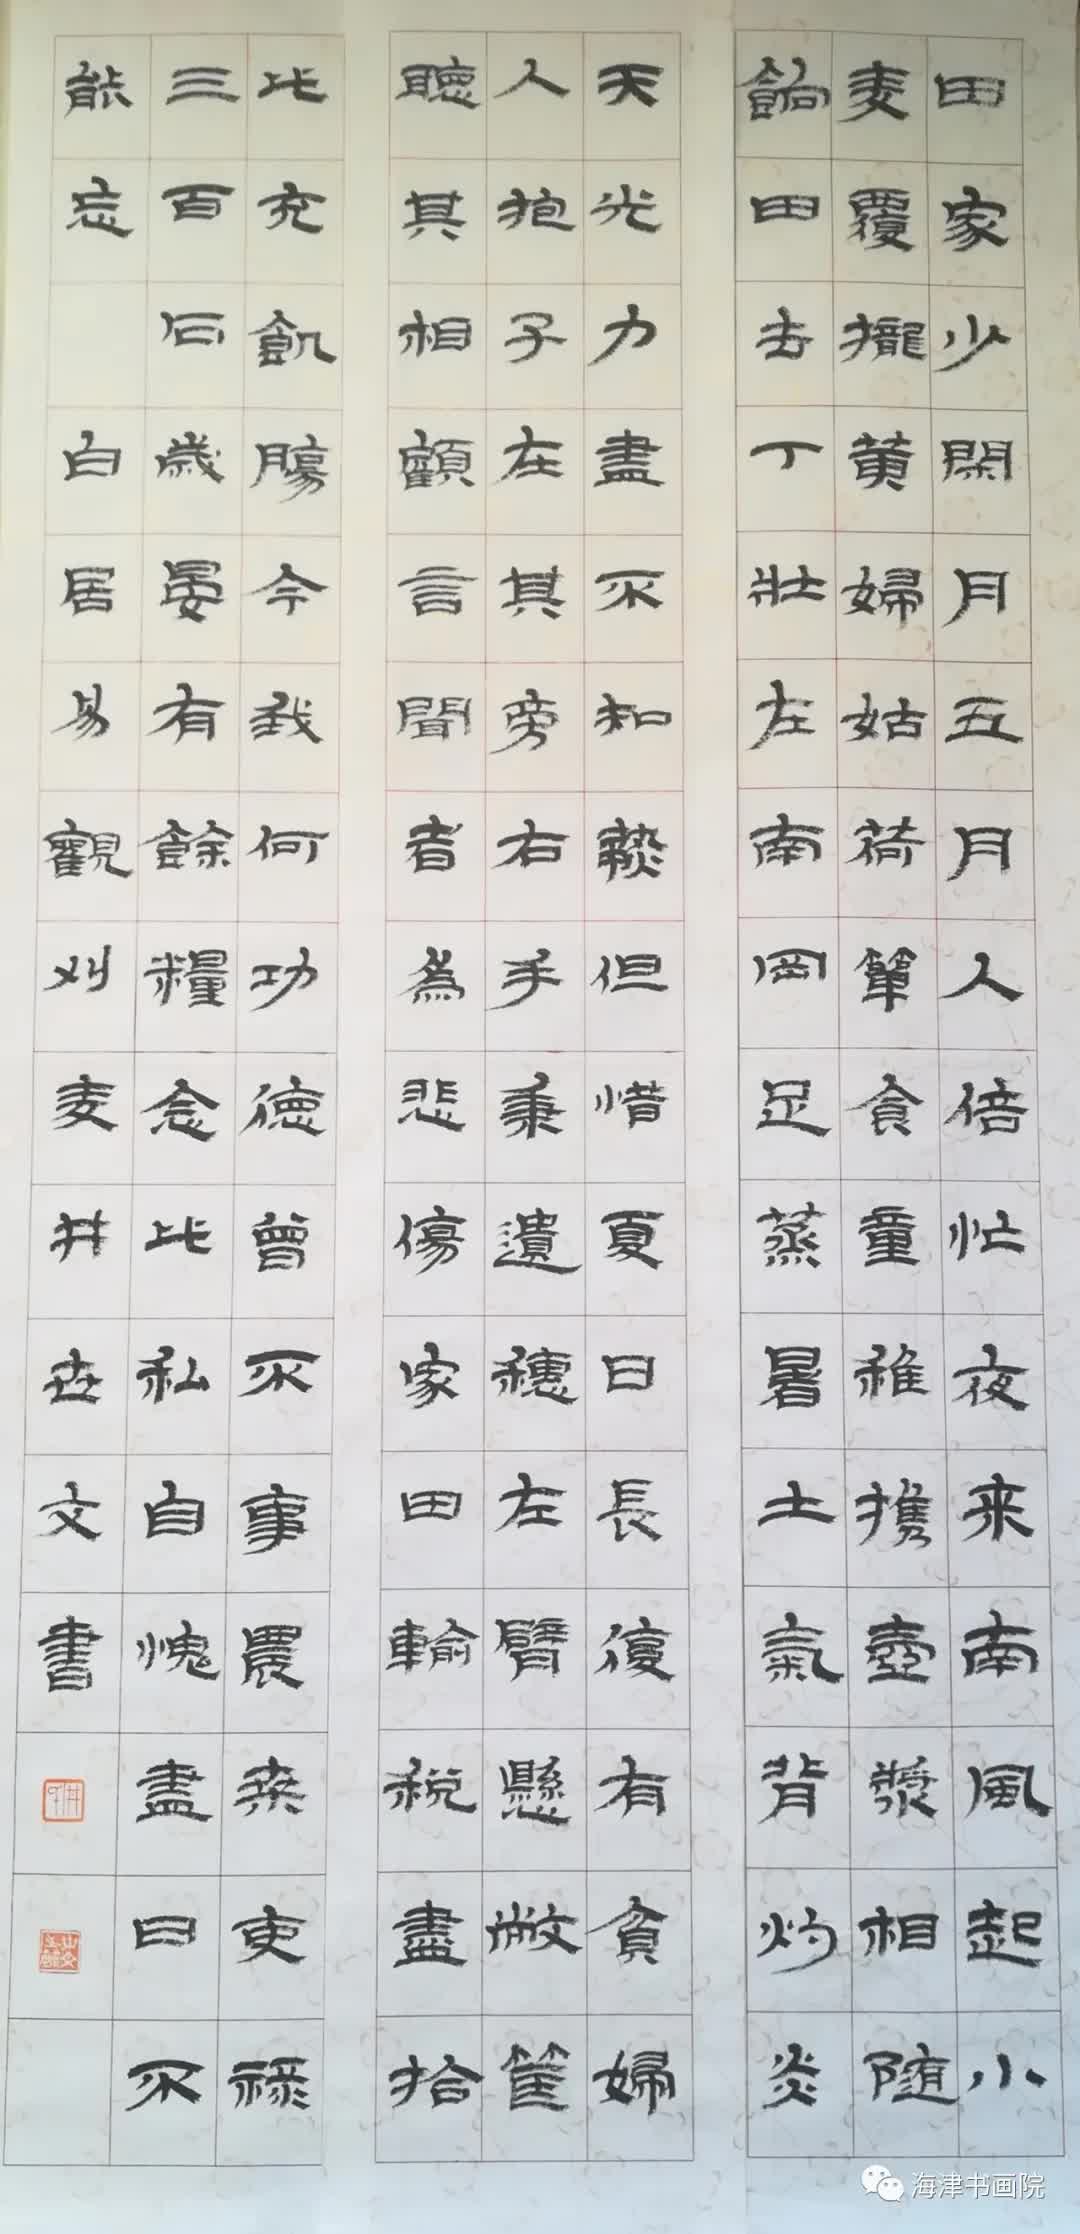 田家少閑月五月人倍忙夜来南風起小
麦覆攏黄婦姑荷箪食童稚攜壺漿相随
餉田去丁壯左南岡足蒸暑土氣背灼炎
天光力盡不知熱但惜夏日長復有貧婦
人抱子在其旁右手秉遺穗左臂懸敝筐
聽其相顧言聞者為悲傷家田輸税盡拾
比充飢腸今我何功德曾不事農桑吏禄
三百石歲晏有餘糧念比私自愧盡日不
能忘 白居易觀刈麦井世文書
海津书画院